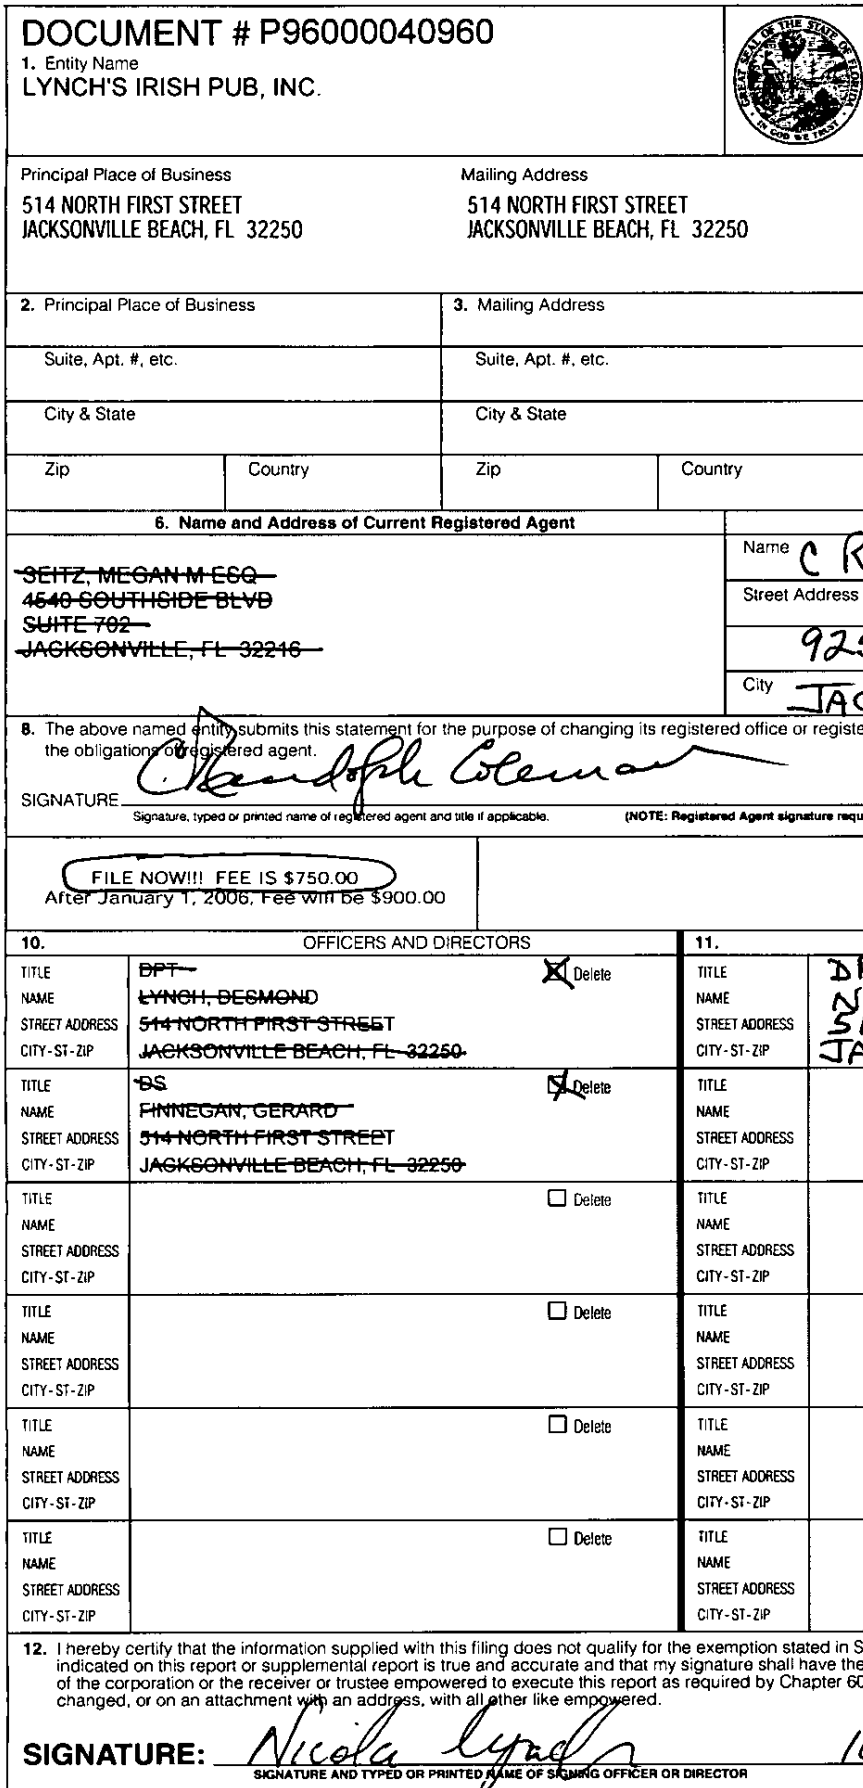 DOCUMENT # P96000040960
1. Entity Name
LYNCH'S IRISH PUB, INC.
GREAT SEAL OF THE STATE OF FLORIDA
IN GOD WE TRUST
Principal Place of Business
514 NORTH FIRST STREET
JACKSONVILLE BEACH, FL 32250
Mailing Address
514 NORTH FIRST STREET
JACKSONVILLE BEACH, FL 32250
2. Principal Place of Business
3. Mailing Address
Suite, Apt. #, etc.
Suite, Apt. #, etc.
City & State
City & State
Zip
Country
Zip
Country
6. Name and Address of Current Registered Agent
SEITZ, MEGAN M ESQ
4540 SOUTHSIDE BLVD
SUITE 702
JACKSONVILLE, FL 32216
Name C R
Street Address
925
City JAC
8. The above named entity submits this statement for the purpose of changing its registered office or registe
the obligations of registered agent.
SIGNATURE C Randolph Coleman
Signature, typed or printed name of registered agent and title if applicable.
(NOTE: Registered Agent signature requ
FILE NOW!!! FEE IS $750.00
After January 1, 2006, Fee will be $900.00
10. OFFICERS AND DIRECTORS
11.
TITLE DPT
Delete
NAME LYNCH, DESMOND
STREET ADDRESS 514 NORTH FIRST STREET
CITY-ST-ZIP JACKSONVILLE BEACH, FL 32250
TITLE DP
NAME N
STREET ADDRESS 51
CITY-ST-ZIP JA
TITLE DS
Delete
NAME FINNEGAN, GERARD
STREET ADDRESS 514 NORTH FIRST STREET
CITY-ST-ZIP JACKSONVILLE BEACH, FL 32250
TITLE
NAME
STREET ADDRESS
CITY-ST-ZIP
TITLE
Delete
NAME
STREET ADDRESS
CITY-ST-ZIP
TITLE
NAME
STREET ADDRESS
CITY-ST-ZIP
TITLE
Delete
NAME
STREET ADDRESS
CITY-ST-ZIP
TITLE
NAME
STREET ADDRESS
CITY-ST-ZIP
TITLE
Delete
NAME
STREET ADDRESS
CITY-ST-ZIP
TITLE
NAME
STREET ADDRESS
CITY-ST-ZIP
TITLE
Delete
NAME
STREET ADDRESS
CITY-ST-ZIP
TITLE
NAME
STREET ADDRESS
CITY-ST-ZIP
12. I hereby certify that the information supplied with this filing does not qualify for the exemption stated in S
indicated on this report or supplemental report is true and accurate and that my signature shall have the
of the corporation or the receiver or trustee empowered to execute this report as required by Chapter 60
changed, or on an attachment with an address, with all other like empowered.
SIGNATURE: Nicola Lynch
SIGNATURE AND TYPED OR PRINTED NAME OF SIGNING OFFICER OR DIRECTOR